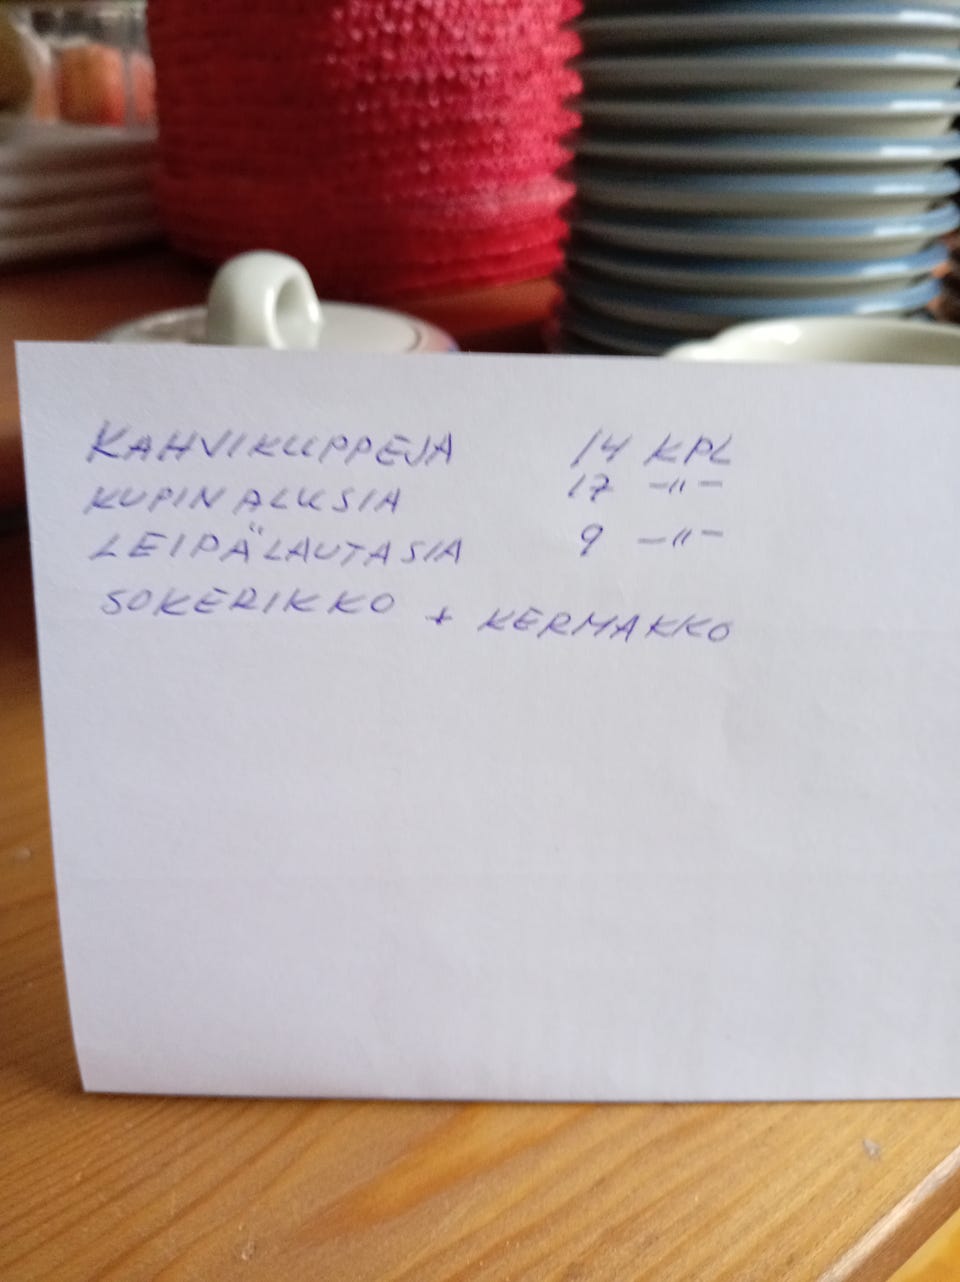 KAHVIKUPPEJA 14 KPL
KUPIN ALUSIA 17 -"-
LEIPÄLAUTASIA 9 -"-
SOKERIKKO + KERMAKKO